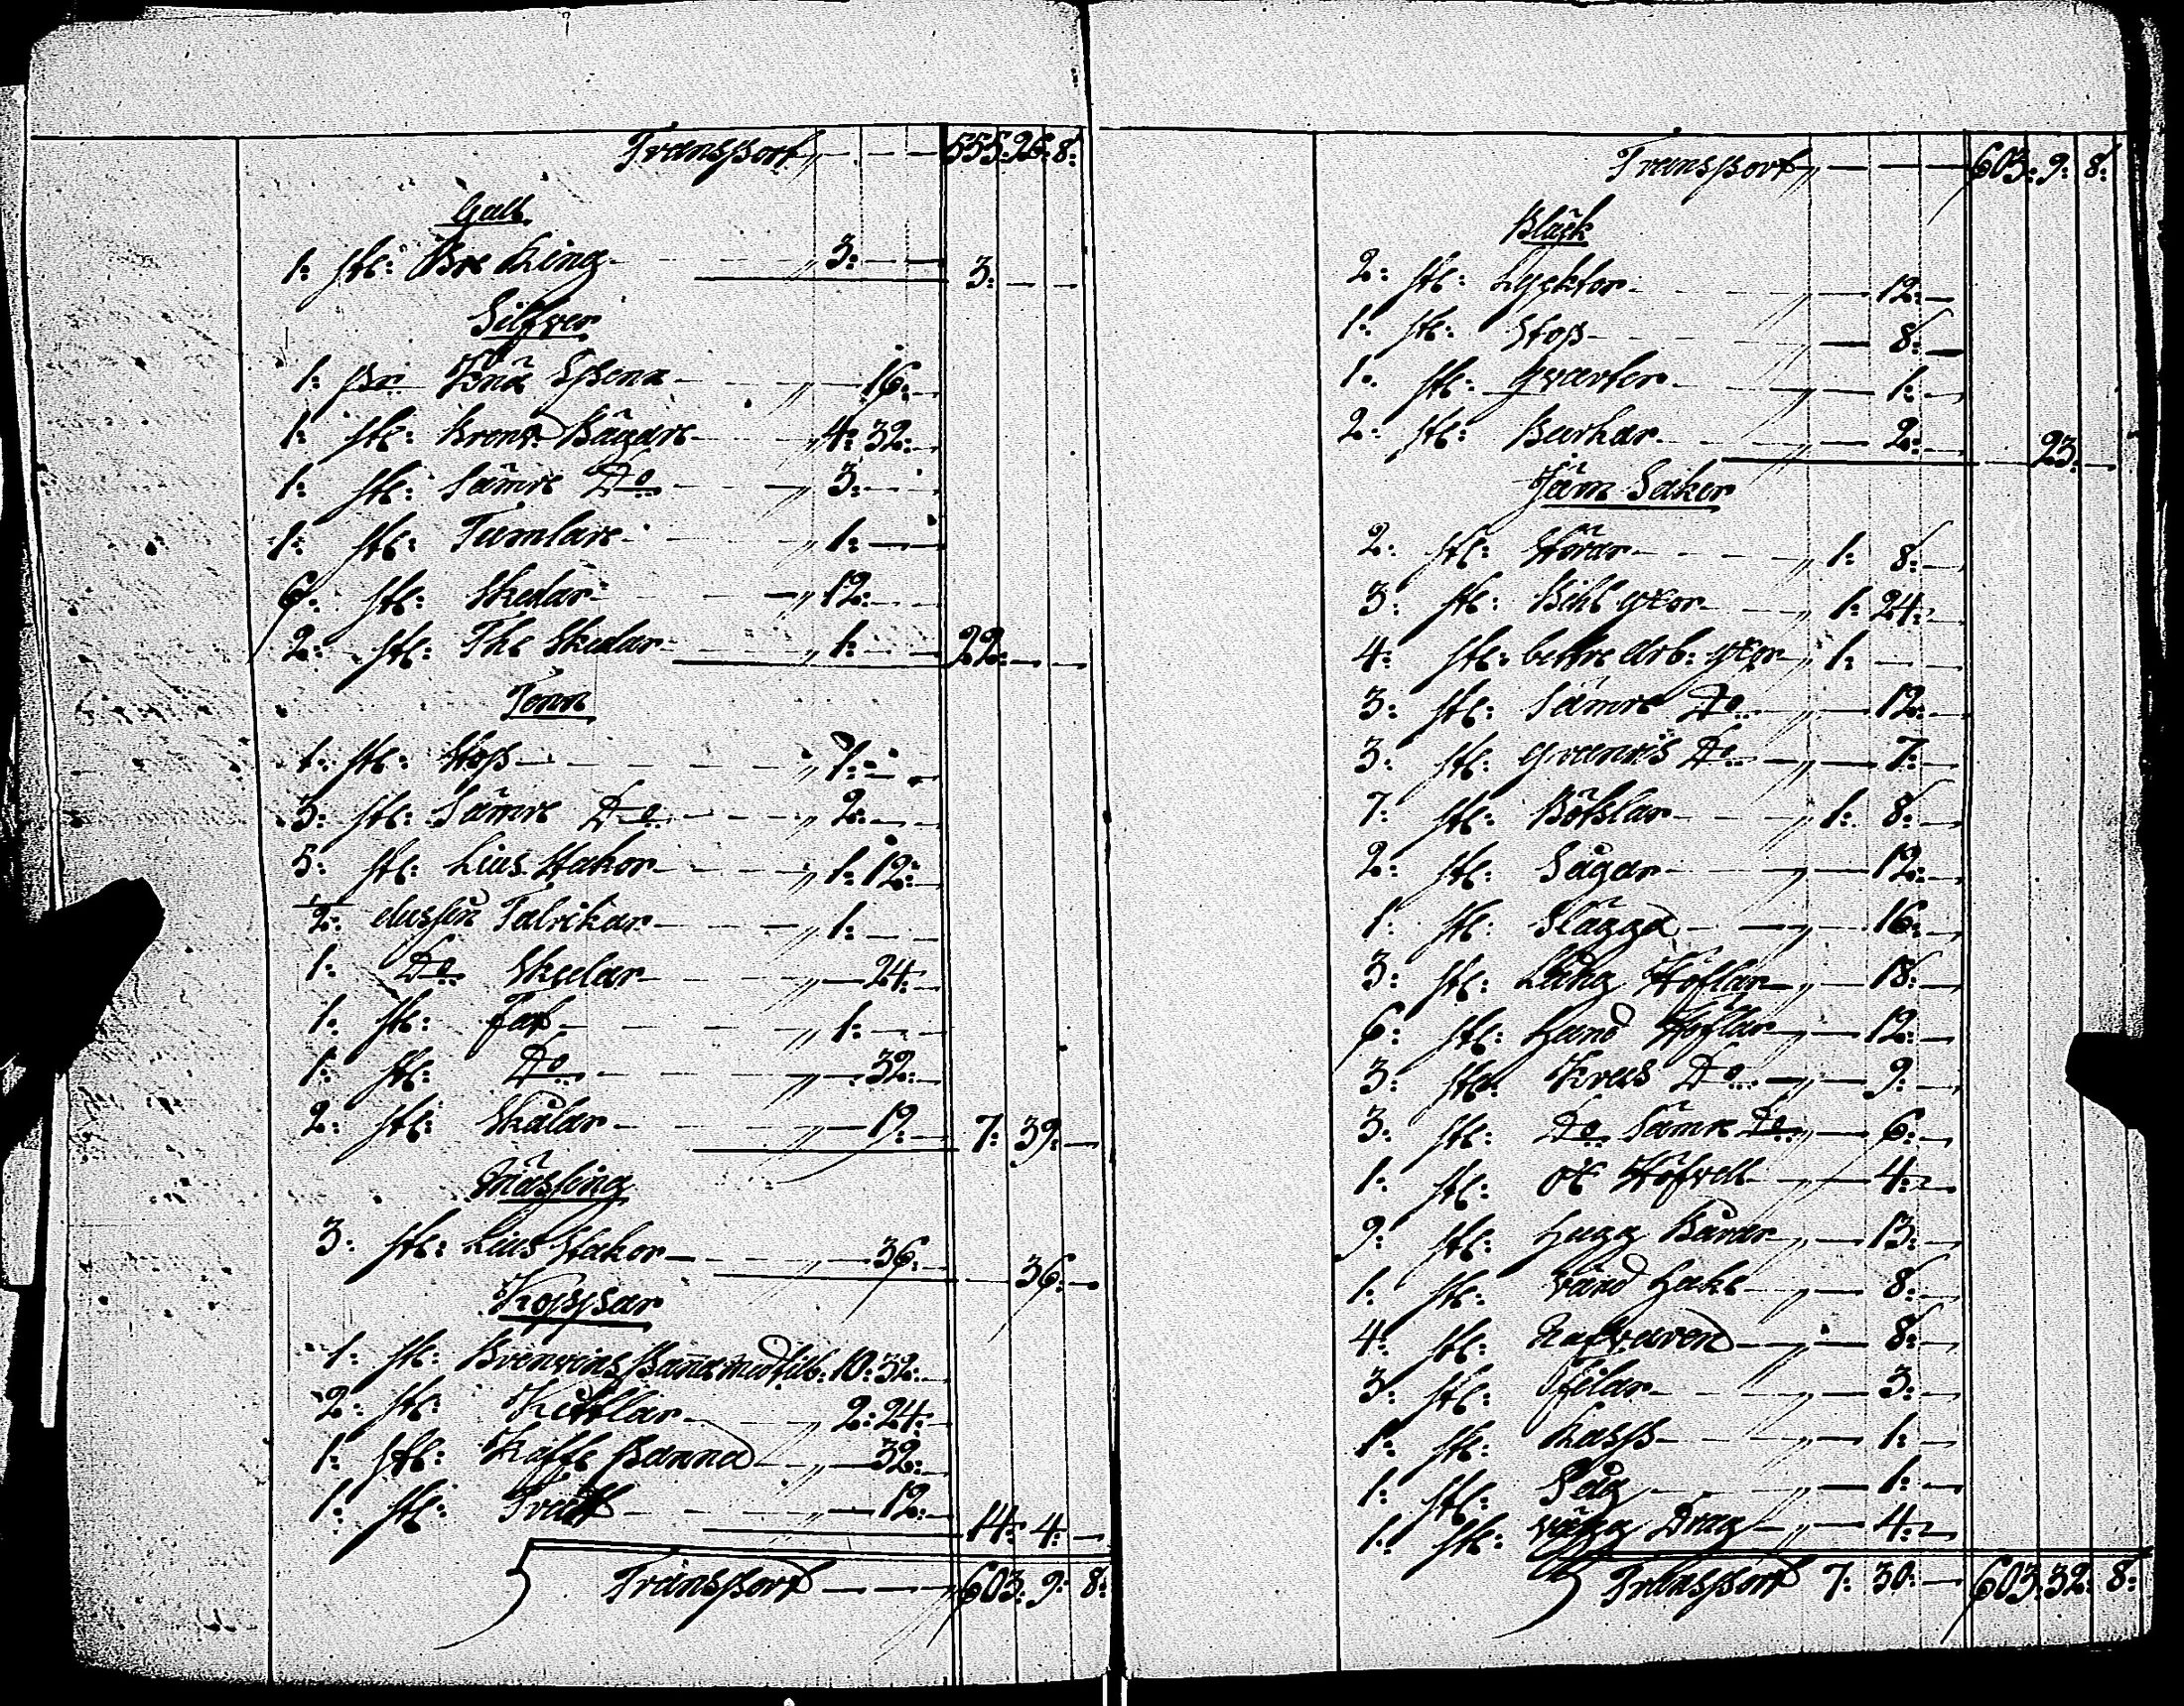 Transport 555: 26: 8:
Gull
1: st: Bre Ring 3: 3:
Silfver
1: par Knä Spene 16:
1: st: Krons Bägare 4: 32:
1: st: Sämre Do 3:
1: st: Tumlare 1:
6: st: Skedar 12:
2: st: The Skedar 1: 22:
Tenn
1: st: Stop 1:
3: st: Sämre Do 2:
5: st: Lius Stakor 1: 12:
1/2: dussin Talrikar 1:
1: Do Skedar 24:
1: st: Fat 1:
1: st: Do 32:
2: st: Skålar 19 7: 39:
Mässing
3: st: Lius Stakor 36: 36:
Koppar
1: st: Brenvins Panna med tilb: 10: 32:
2: st: Kittlar 2: 24:
1: st: Kaffe Panna 32:
1: st: Tratt 12: 14: 4:
Transport 603: 9: 8:
Transport 603: 9: 8:
Bläck
2: st: Lycktor 12:
1: st: Stop 8:
1: st: Qvarter 1:
2: st: Burkar 2: 23:
Järn Saker
2: st: Störar 1: 8:
3: st: Bihl yxor 1: 24:
4: st: bettre arb: yxor 1:
3: st: Sämre Do 12:
3: st: Do 7:
7: st: Bötslar 1: 8:
2: st: Sågar 12:
1: st: Slägga 16:
3: st: Lång Höflar 18:
6: st: Hand Höflar 12:
3: st: Krus Do 9:
3: st: Do Sämre Do 6:
1: st: Höfvell 4:
9: st: Hugg Banor 13:
1: st: Vänd Hake 8:
4: st: Nafvaren 8:
3: st: Filar 3:
1: st: Rasp 1:
1: st: Såg 1:
1: st: Vägg Drag 4:
Transport 7: 30: 603: 32: 8: